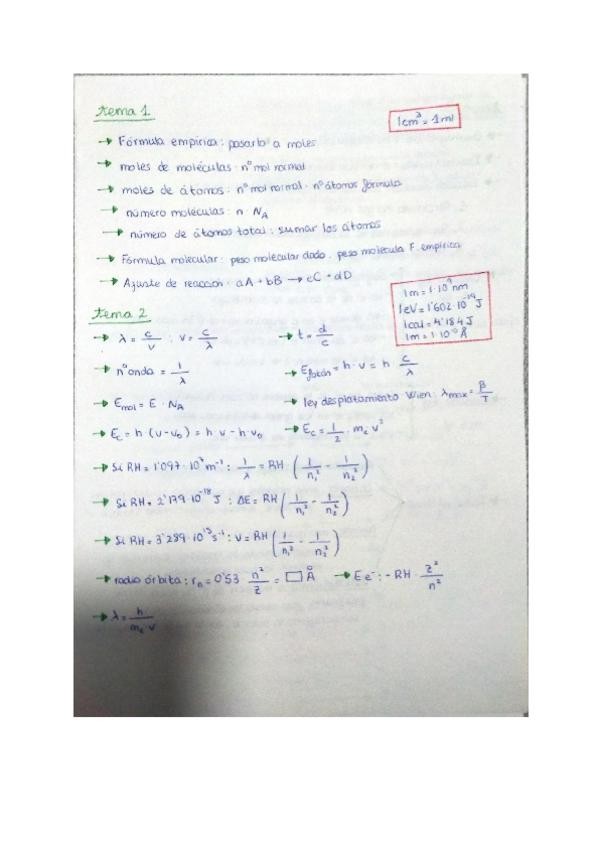 tema 1
1cm³ = 1ml
→ Fórmula empírica: pasarlo a moles
→ moles de moléculas: nº mol normal
→ moles de átomos: nº mol normal · nº átomos fórmula
→ número moléculas: n · NA
→ número de átomos total: sumar los átomos
→ Fórmula molecular: peso molecular dado : peso molécula F. empírica
→ Ajuste de reacción: aA + bB → cC + dD
1m = 1·10⁹ nm
1eV = 1'602·10⁻¹⁹ J
1cal = 4'184 J
1m = 1·10¹⁰ Å
tema 2
→ λ = c/ν ; ν = c/λ → t = d/c
→ nº onda = 1/λ → Efotón = h · ν = h c/λ
→ Emol = E · NA → ley desplatamiento Wien: λmax = β/T
→ Ec = h (ν-ν₀) = h·ν - h·ν₀ → Ec = 1/2 · me v²
→ Si RH = 1'097·10⁷ m⁻¹ : 1/λ = RH · (1/n₁² - 1/n₂²)
→ Si RH = 2'179·10⁻¹⁸ J : ΔE = RH (1/n₁² - 1/n₂²)
→ Si RH = 3'289·10¹⁵ s⁻¹ : ν = RH (1/n₁² - 1/n₂²)
→ radio órbita: rn = 0'53 · n²/z = □ Å → E e⁻ : -RH · z²/n²
→ λ = h/me·v